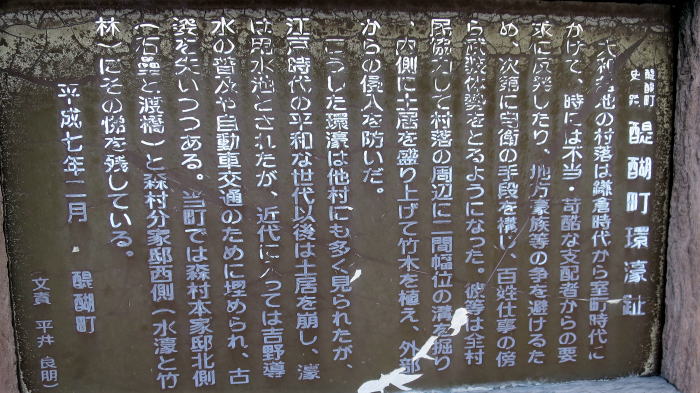 醍醐町
史跡
醍醐町環濠趾
大和盆地の村落は鎌倉時代から室町時代に
かけて、時には不当・苛酷な支配者からの要
求に反発したり、地方豪族等の争を避けるた
め、次第に自衛の手段を構じ、百姓仕事の傍
ら武装体勢をとるようになった。彼等は全村
民協力して村落の周辺に二間幅位の溝を掘り
、内側に土居を盛り上げて竹木を植え、外部
からの侵入を防いだ。
こうした環濠は他村にも多く見られたが、
江戸時代の平和な世代以後は土居を崩し、濠
は用水池とされたが、近代に入っては吉野導
水の普及や自動車交通のために埋められ、古
姿を失いつつある。当町では森村本家邸北側
（石壘と渡橋）と森村分家邸西側（水濠と竹
林）にその悌を残している。
平成七年二月 醍醐町
文責 平井 良朋）